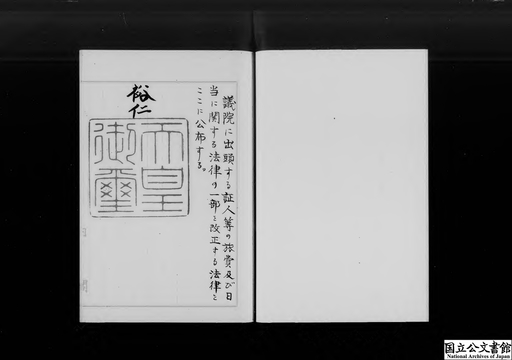 議院に出頭する証人等の旅費及び日
当に関する法律の一部を改正する法律を
ここに公布する。
裕仁
天皇
御璽
国立公文書館
National Archives of Japan